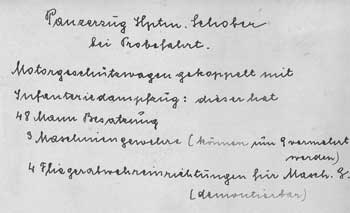 Panzerzug Hptm. Schober
bei Probefahrt.
Motorgeschützwagen gekoppelt mit
Infanteriedampfzug: dieser hat
48 Mann Besatzung
3 Maschinengewehre (können um 9 vermehrt
werden)
4 Fliegerabwehreinrichtungen für Masch. G.
(demontierbar)